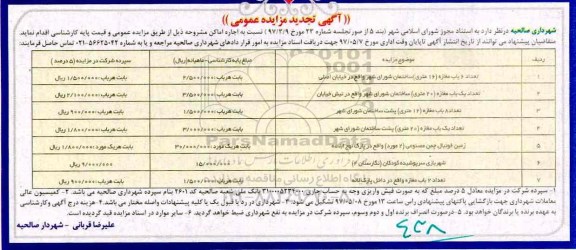 (( آگهی تجدید مزایده عمومی ))
شهرداری صالحیه درنظر دارد به استناد مجوز شورای اسلامی شهر (بند ۵ از صورتجلسه شماره ۲۳ مورخ ۹۷/۳/۹) نسبت به اجاره اماکن مشروحه ذیل از طریق مزایده عمومی و قیمت پایه کارشناسی اقدام نماید.
متقاضیان پیشنهاد می توانند از تاریخ انتشار آگهی تاپایان وقت اداری مورخ ۹۷/۰۵/۷ جهت دریافت اسناد مزایده به امور قرار دادهای شهرداری صالحیه مراجعه و یا به شماره ۵۶۶۲۵۰۴۲-۰۲۱ تماس حاصل فرمایند:
ردیف موضوع مزایده مبلغ پایه کارشناسی-ماهیانه(ریال) سپرده شرکت در مزایده (۵ درصد)
۱ تعداد ۶ باب مغازه (۱۶ متری) ساختمان شورای شهر واقع در خیابان اصلی بابت هرباب: ۲/۵۰۰/۰۰۰ بابت هرباب: ۱/۵۰۰/۰۰۰ ریال
۲ تعداد یک باب مغازه (۲۰ متری) ساختمان شورای شهر واقع در نبش خیابان بابت هرباب: ۳/۵۰۰/۰۰۰ بابت هرباب: ۲/۱۰۰/۰۰۰ ریال
۳ تعداد ۸ باب مغازه (۱۶ متری) پشت ساختمان شورای شهر بابت هرباب: ۱/۵۰۰/۰۰۰ بابت هرباب: ۹۰۰/۰۰۰ ریال
۴ تعداد یک باب مغازه (۲۰ متری) پشت ساختمان شورای شهر بابت هرباب: ۳/۰۰۰/۰۰۰ بابت هرباب: ۱/۸۰۰/۰۰۰ ریال
۵ زمین فوتبال چمن مصنوعی (۲ مورد) واقع در پارک نوح گلدسته بابت هریک مورد: ۳۰/۰۰۰/۰۰۰ بابت هریک مورد: ۱/۸۰۰/۰۰۰ ریال
۶ شهربازی سرپوشیده کودکان (نگارستان ۶) ۹/۰۰۰/۰۰۰ ریال
۷ تعداد ۲ باب مغازه واقع در داخل پارک لاله بابت هرباب: ۹۰۰/۰۰۰ ریال
۱- سپرده شرکت در مزایده معادل ۵ درصد مبلغ که به صورت فیش واریزی وجه به حساب جاری بانک ملی شعبه صالحیه کد ۲۶۰۱ بنام سپرده شهرداری صالحیه می باشد. ۲- کمیسیون عالی
معاملات شهرداری جهت بازگشایی پاکتهای پیشنهادی راس ساعت ۱۳ مورخ ۹۷/۰۵/۰۸ تشکیل می شود. ۳- شهرداری در رد یا قبول یک یا کلیه پیشنهادات واصله مختار می باشد. ۴- هزینه درج آگهی وکارشناسی
به عهده برنده یا برندگان خواهد بود. ۵- درصورت انصراف برنده اول و دوم وسوم، سپرده شرکت در مزایده به نفع شهرداری ضبط خواهد گردید. ۶- سایر موارد در اسناد مزایده قید گردیده است.
علیرضا قربانی - شهردار صالحیه